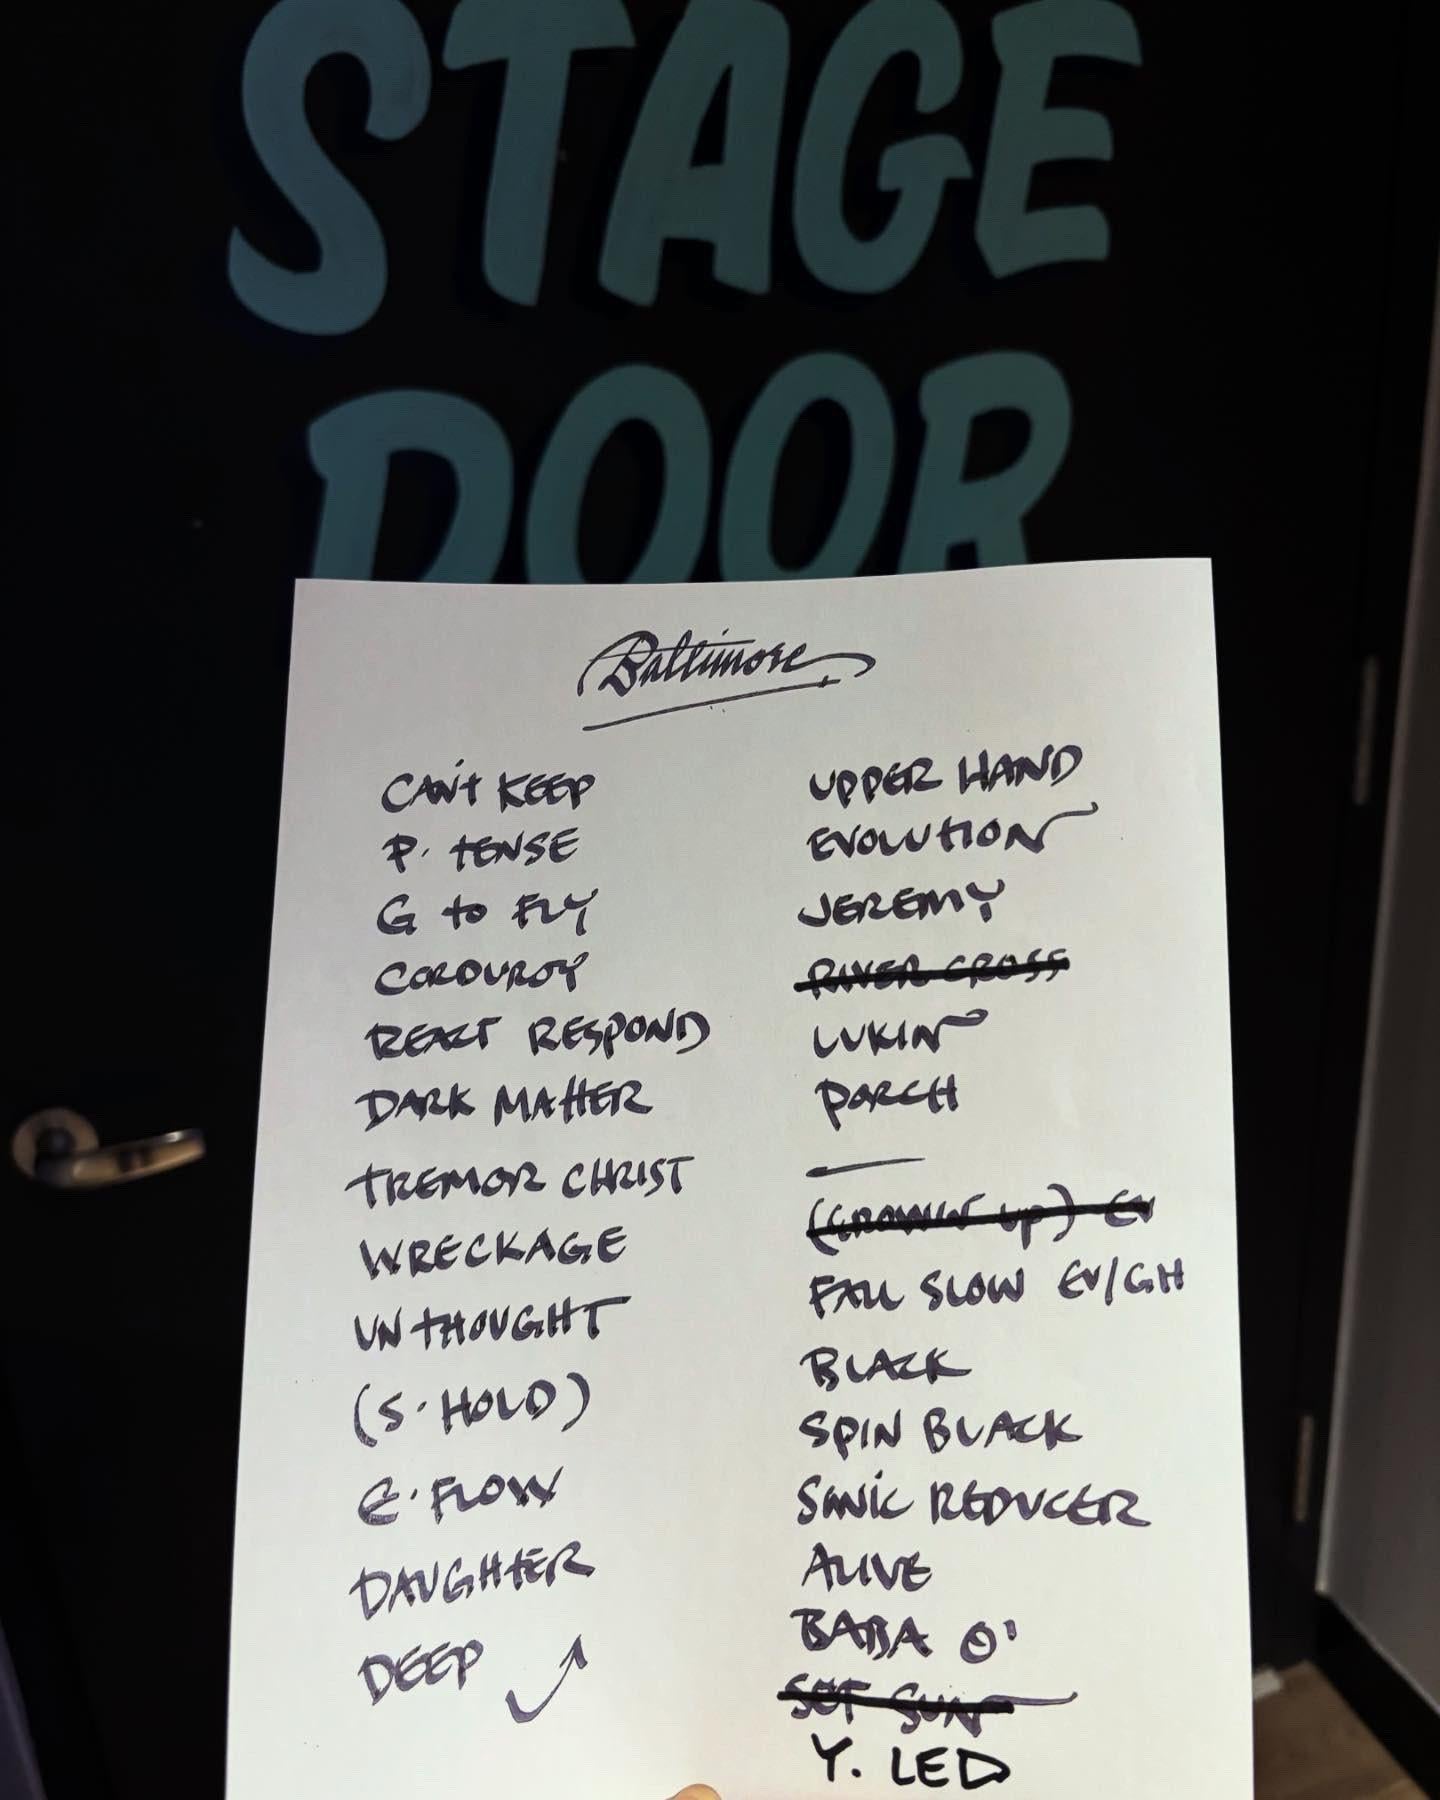 STAGE
DOOR
Baltimore
CAN'T KEEP
P. TENSE
G to FLY
CORDUROY
REACT RESPOND
DARK MATTER
TREMOR CHRIST
WRECKAGE
UNTHOUGHT
(S. HOLD)
E. FLOW
DAUGHTER
DEEP
UPPER HAND
EVOLUTION
JEREMY
RIVER CROSS
LUKIN
PORCH
(GROWN UP) EV
FALL SLOW EV/GH
BLACK
SPIN BLACK
SONIC REDUCER
ALIVE
BABA O'
SET SUN
Y. LED